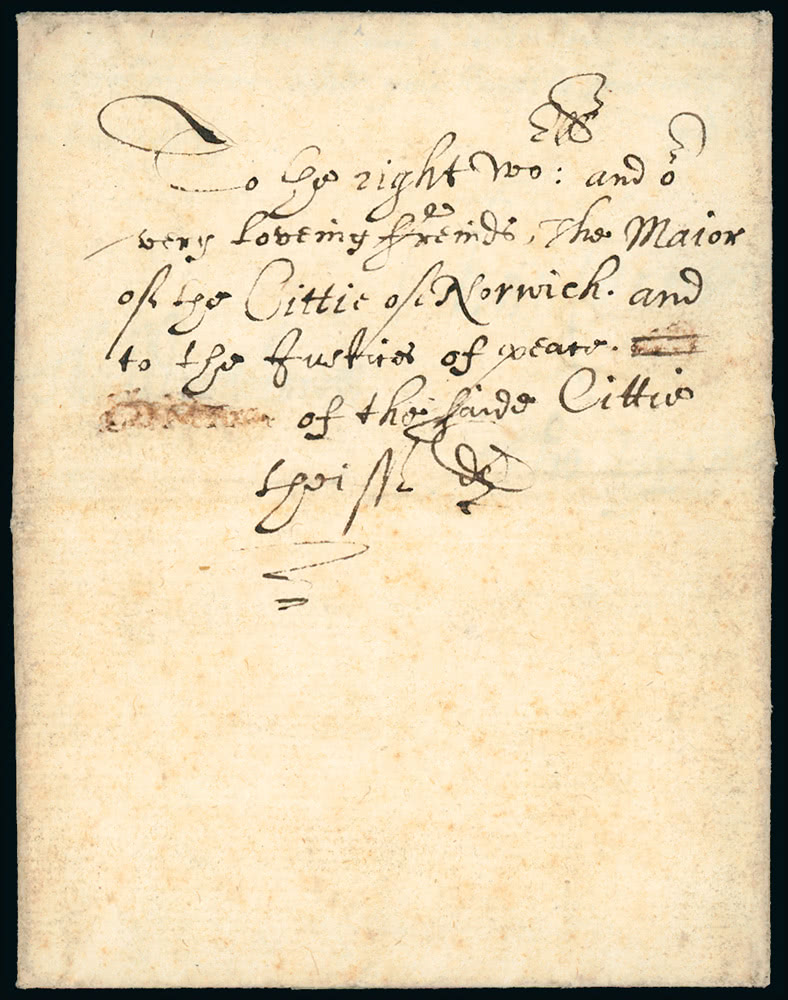 To the right wo: and or
very loveing freinds, The Maior
of the Cittie of Norwich. and
to the Justices of peace.
of the saide Cittie
theise dd